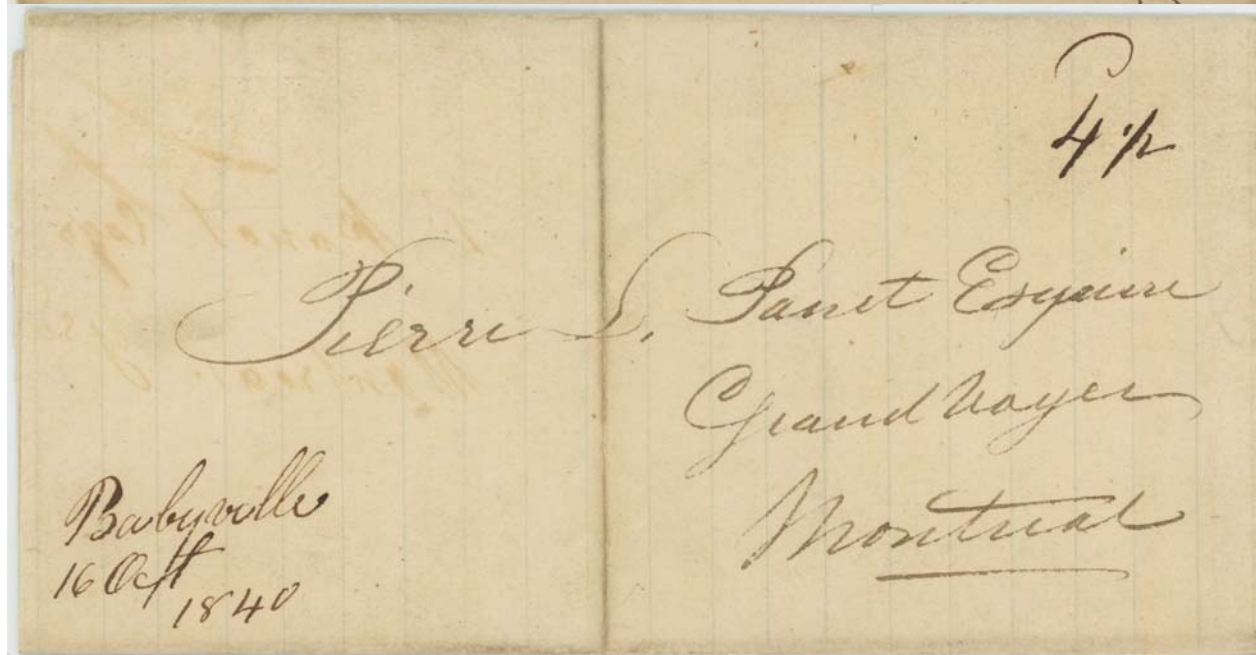 4 1/2
Pierre L. Panet Esquire
Grand Voyer
Montreal
Babyville
16 Oct
1840